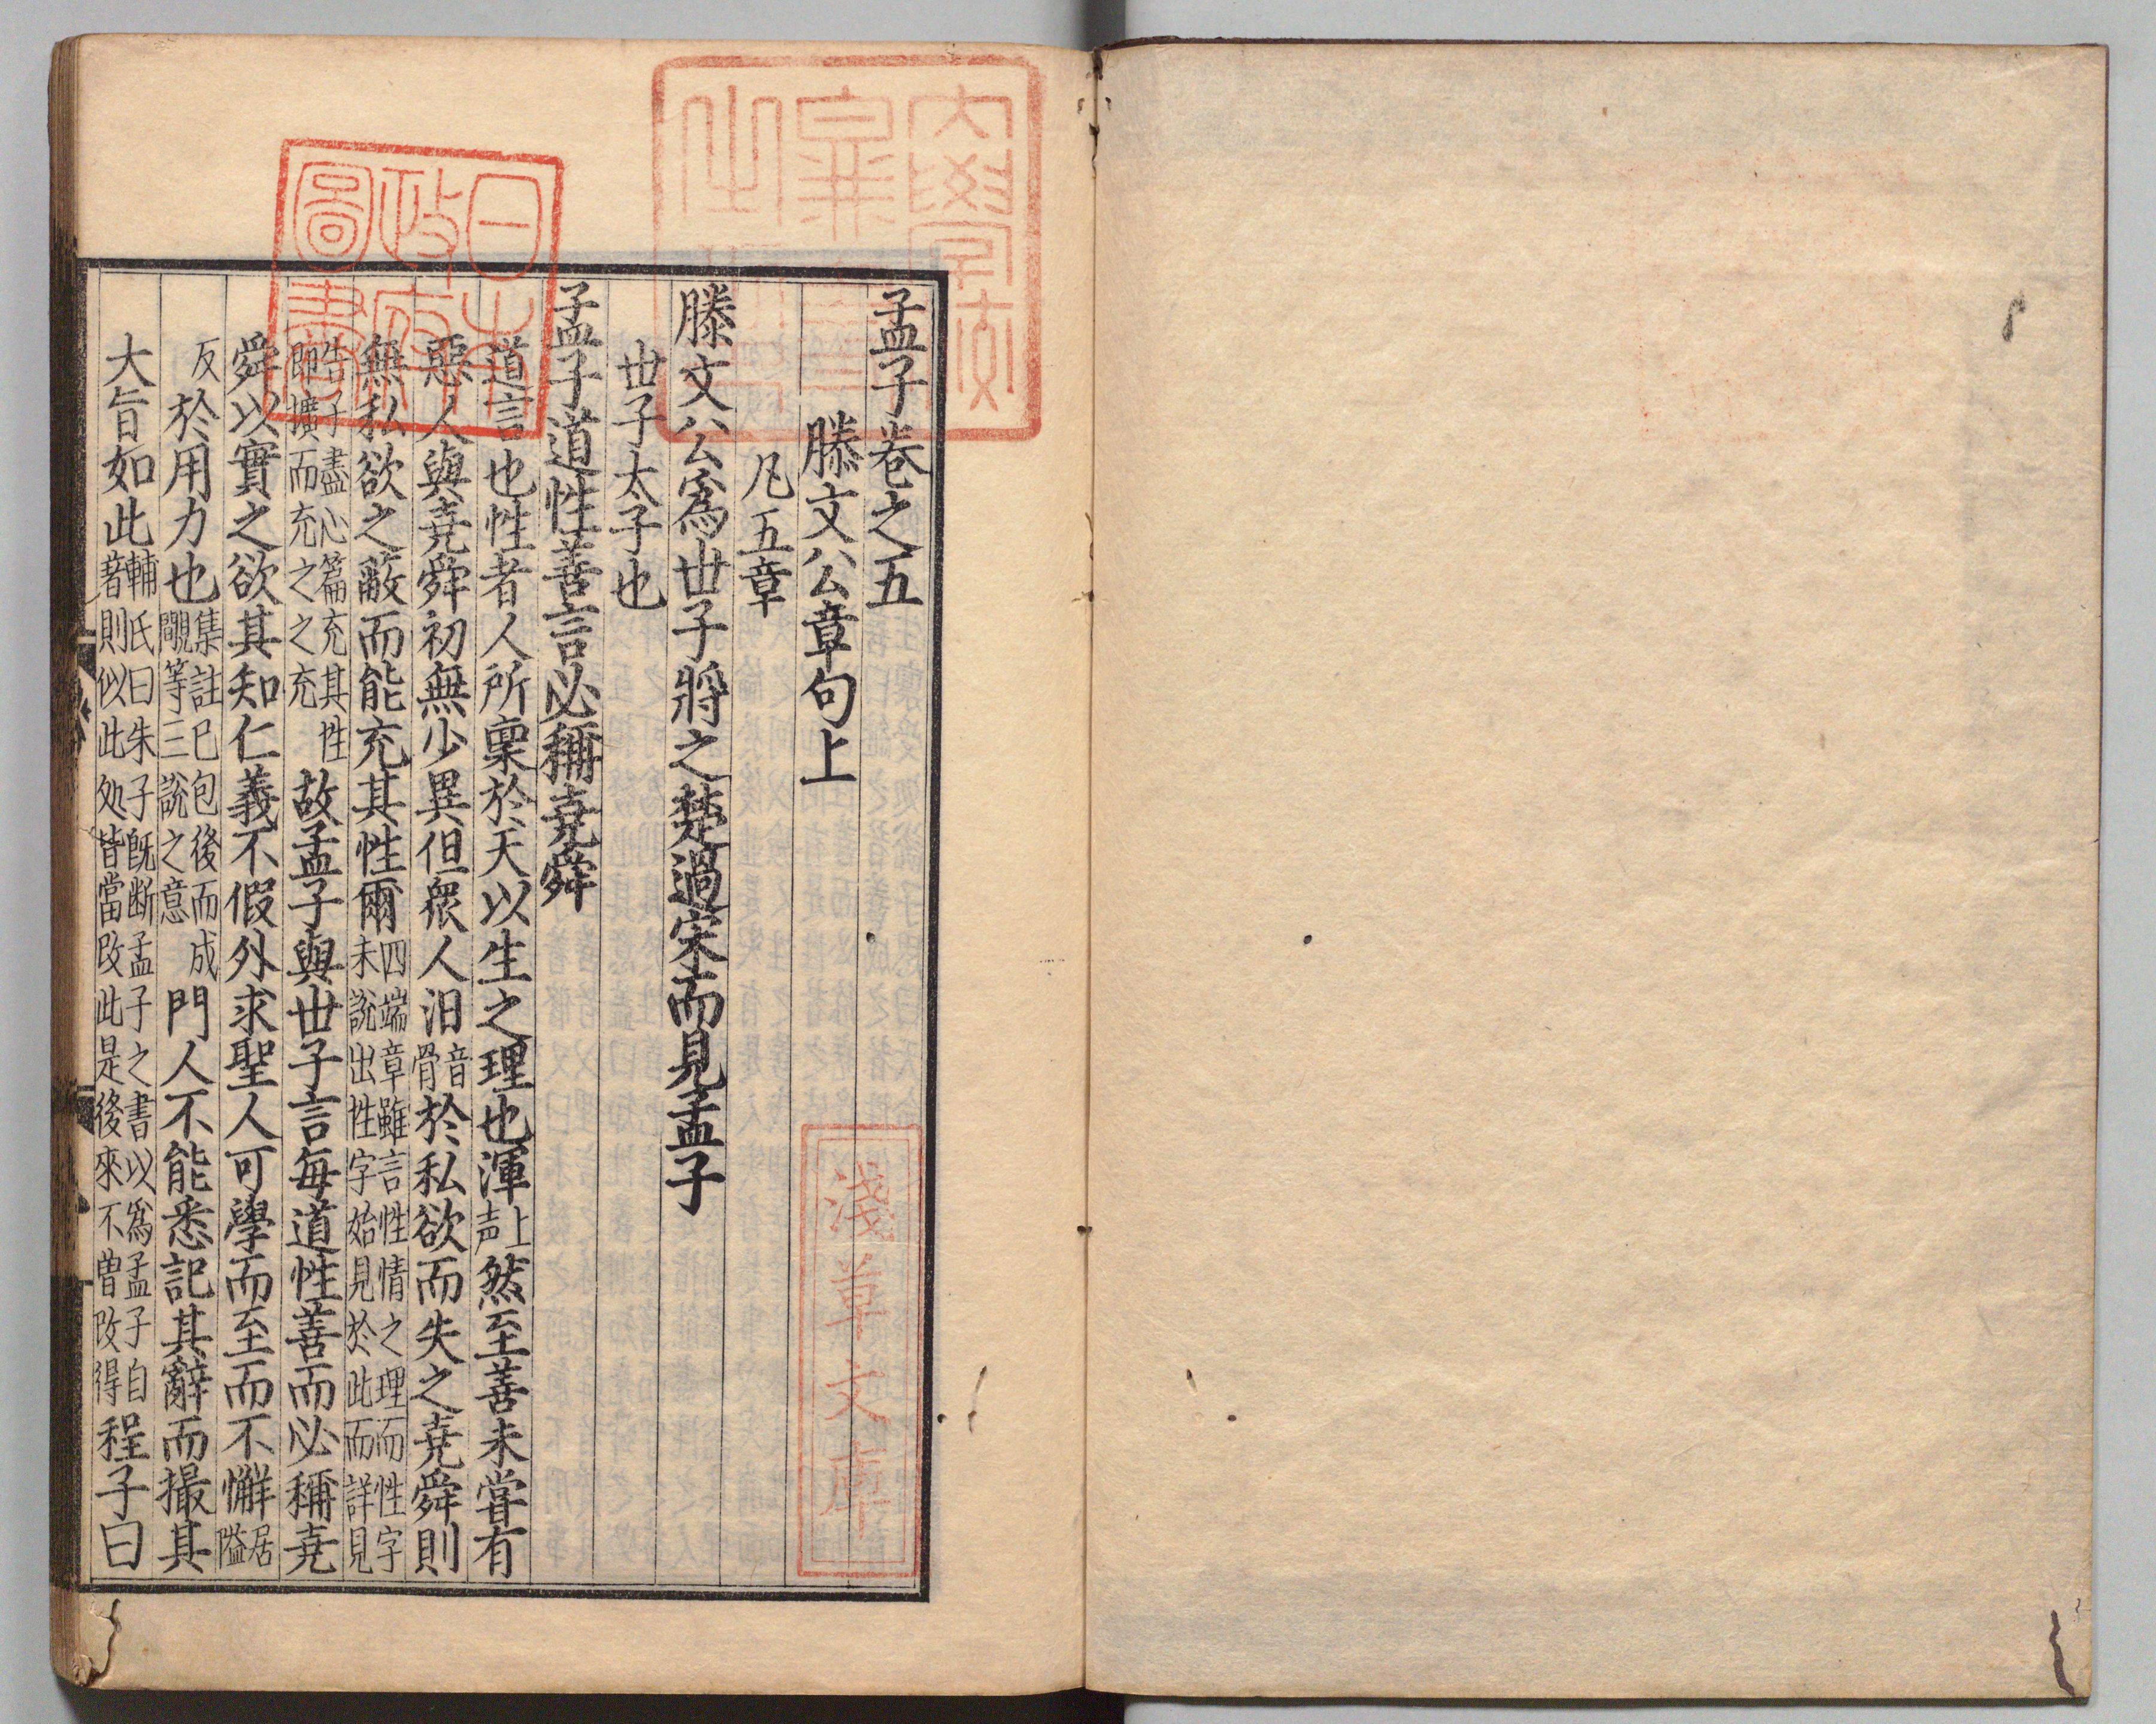 孟子卷之五
滕文公章句上
凡五章
滕文公爲世子將之楚過宋而見孟子
世子太子也
孟子道性善言必稱堯舜
道言也性者人所稟於天以生之理也渾上声然至善未嘗有
惡人與堯舜初無少異但衆人汨音骨於私欲而失之堯舜則
無私欲之蔽而能充其性爾四端章雖言性情之理而性字未說出性字始見於此而詳見
告子盡心篇充其性即擴而充之之充故孟子與世子言每道性善而必稱堯
舜以實之欲其知仁義不假外求聖人可學而至而不懈居隘
反於用力也集註已包後而成覸等三說之意門人不能悉記其辭而撮其
大旨如此輔氏曰朱子既断孟子之書以爲孟子自著則似此処皆當改此是後來不曾改得程子曰
日本政府圖書
淺草文庫